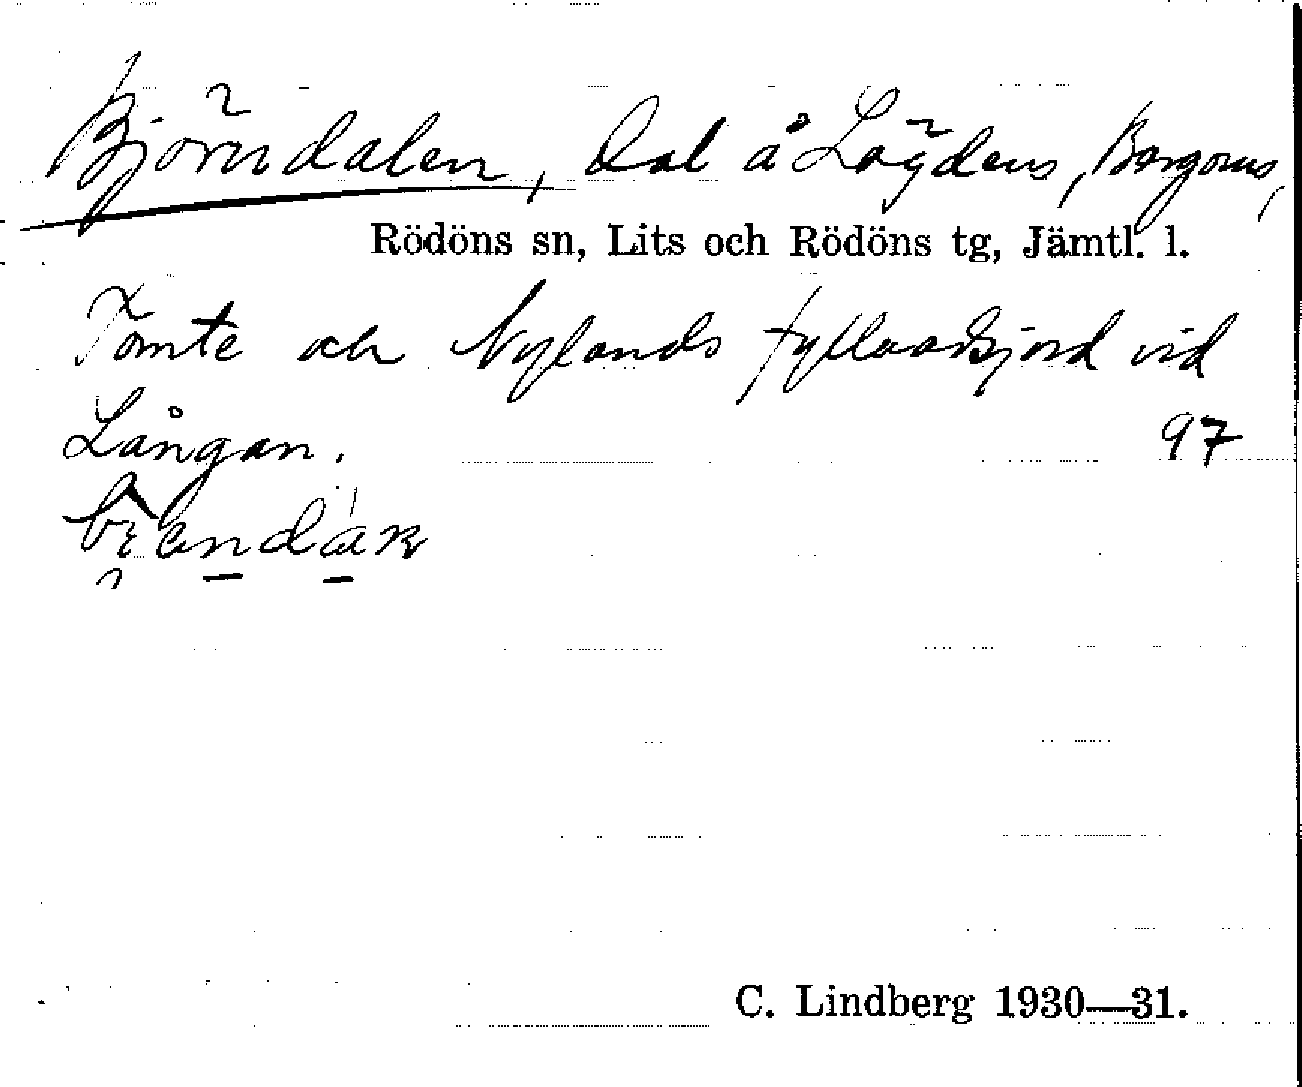 Björndalen, dal å Lögdens, Borgens,
Rödöns sn, Lits och Rödöns tg, Jämtl. l.
Tomte och Nylands fyllnadsjord vid
Långan. 97
C. Lindberg 1930—31.